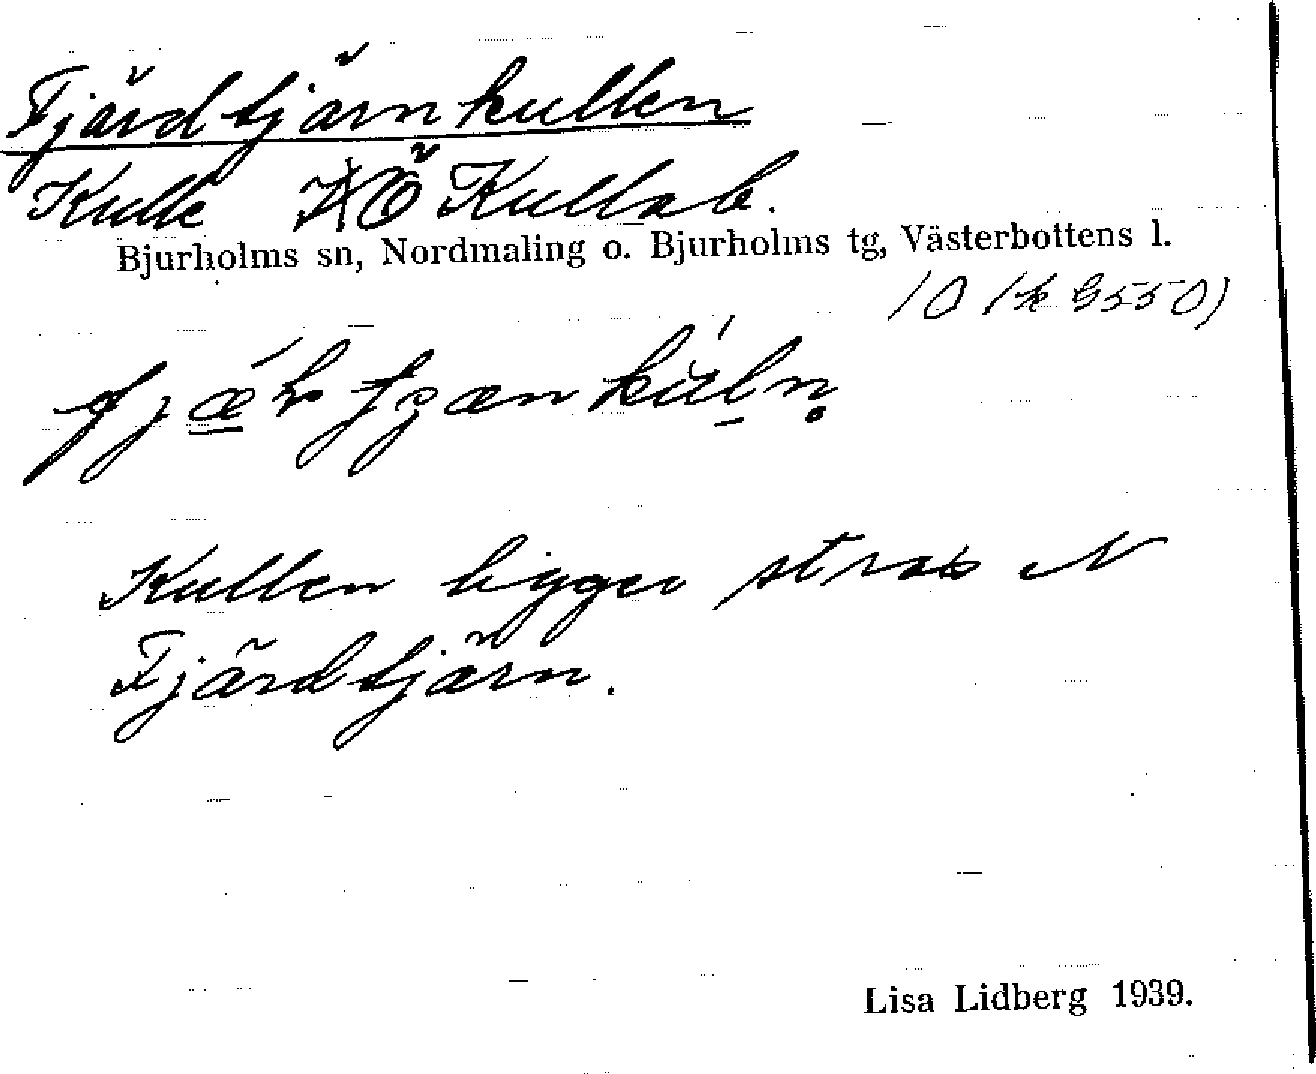 Fjärdtjärnkullen
Kulle Ö Kullab.
Bjurholms sn, Nordmaling o. Bjurholms tg, Västerbottens l.
Kullen ligger strax N
Fjärdtjärn.
Lisa Lidberg 1939.